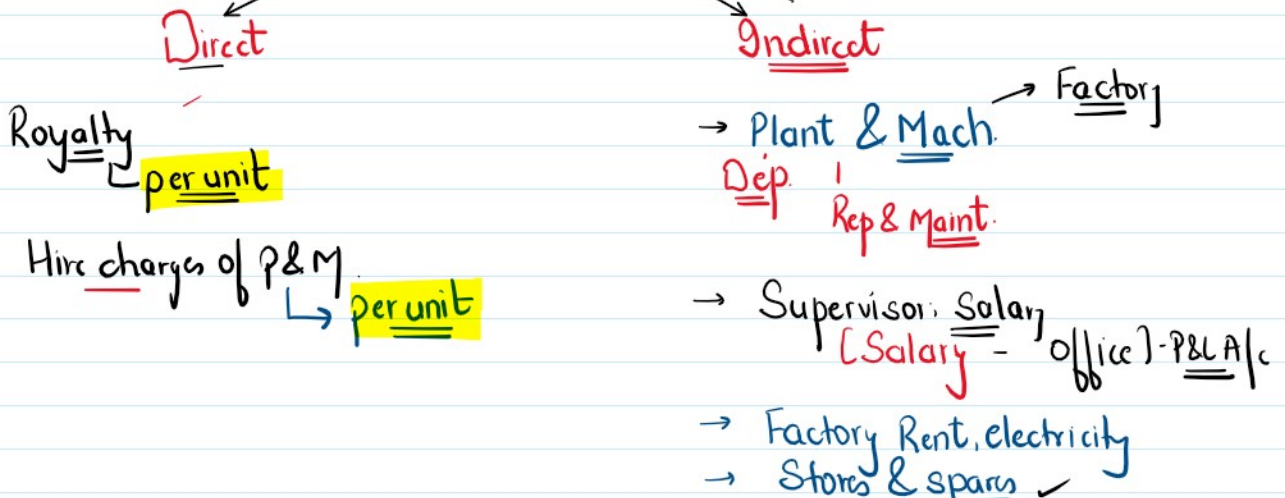 Direct
Royalty
per unit
Hire charges of P&M.
per unit
Indirect
→ Plant & Mach. → Factory
Dep.
Rep & Maint.
→ Supervisor: Salary
[Salary - Office] - P&L A/c
→ Factory Rent, electricity
→ Stores & spares ✓